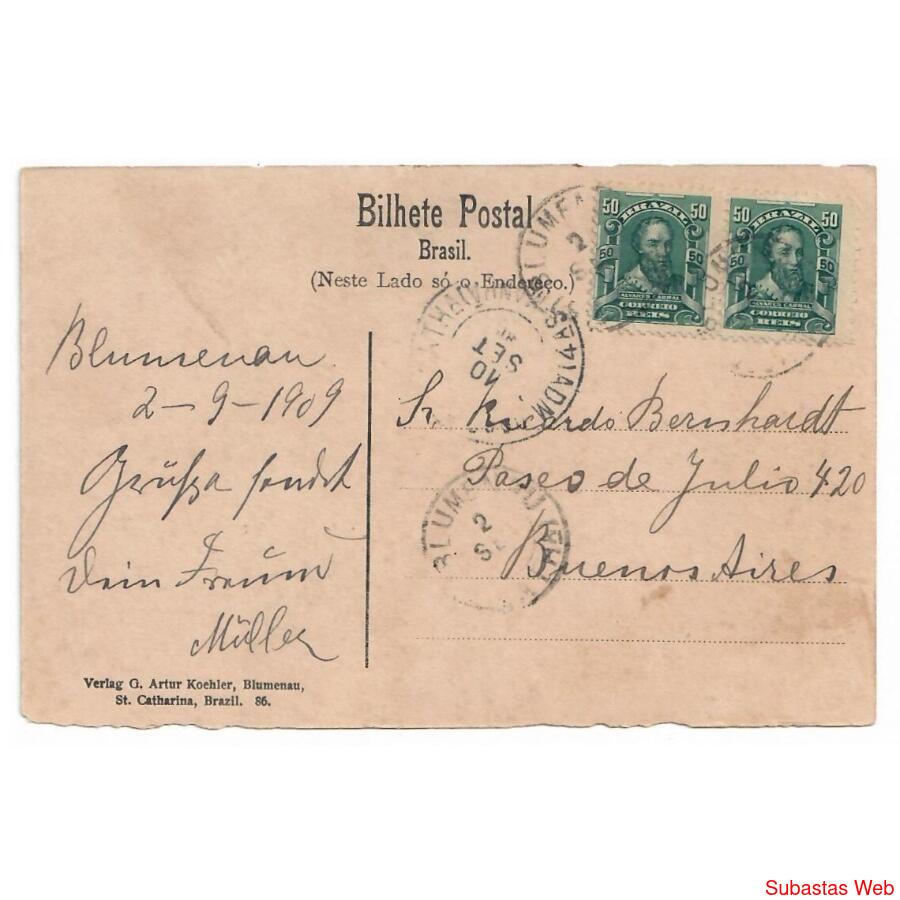 Bilhete Postal
Brasil.
(Neste Lado só o Endereço.)
50 BRAZIL 50
50 50
ALVARES CABRAL
CORREIO
REIS
50 BRAZIL 50
50 50
ALVARES CABRAL
CORREIO
REIS
BLUMENAU
2
10
SET
Blumenau
2-9-1909
Grüße sendt
Dein Freund
Müller
Sr. Ricardo Bernhardt
Paseo de Julio 420
Buenos Aires
BLUMENAU
2
Verlag G. Artur Koehler, Blumenau,
St. Catharina, Brazil. 86.
Subastas Web